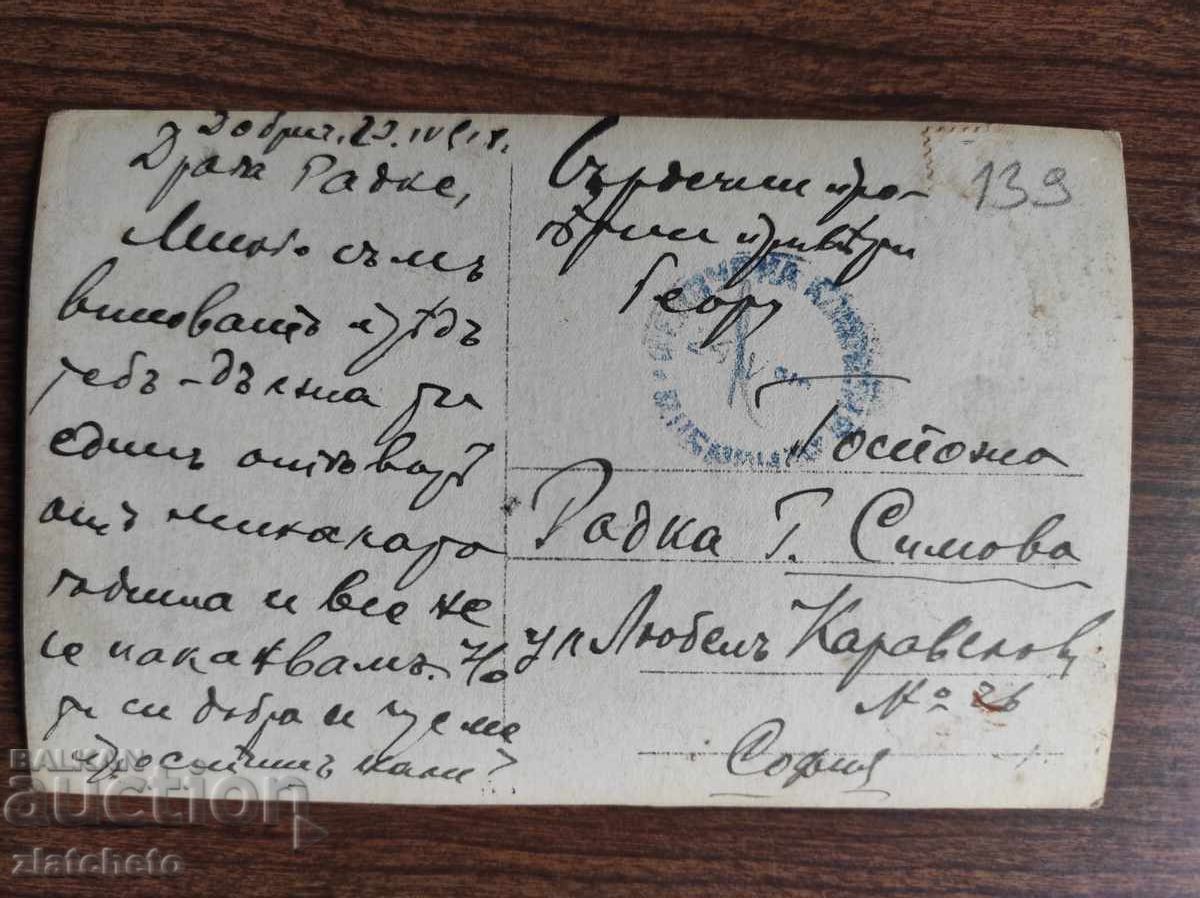 Добрич, 23.IV 918.
Драга Радке,
Много съмъ
виноватъ прѣдъ
тебъ - дължа ти
единъ отговоръ
отъ миналата
година и все не
се наканвамъ. Но
ти си добра и ще ме
простишъ нали?
Сърдечни про-
лѣтни привѣти
Георг
139
Госпожа
Радка Г. Симова
ул Любенъ Каравеловъ
№ 26
София
BALKAN
auction
zlatcheto